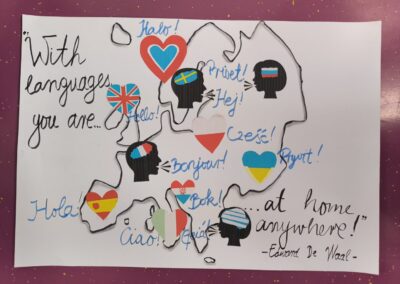 "With
languages
you are...
Halo!
Hello!
Privet!
Hej!
Cześć!
Bonjour!
Hola!
Bok!
Ciao!
...at home
anywhere!"
- Edward De Waal -